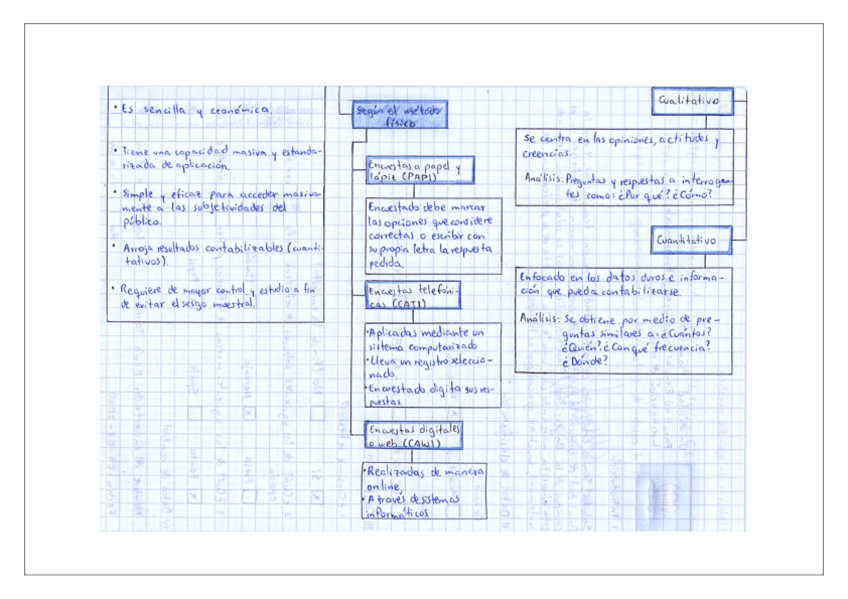 • Es sencilla y económica.
• Tiene una capacidad masiva y estanda-
rizada de aplicación.
• Simple y eficaz para acceder masiva-
mente a las subjetividades del
público.
• Arroja resultados contabilizables (cuanti-
tativos).
• Requiere de mayor control y estudio a fin
de evitar el sesgo muestral.
Según el método
físico
Encuestas a papel y
lápiz (PAPI)
Encuestado debe marcar
las opciones que considere
correctas o escribir con
su propia letra la respuesta
pedida.
Encuestas telefóni-
cas (CATI)
• Aplicadas mediante un
sistema computarizado
• Lleva un registro seleccio-
nado.
• Encuestado digita sus res-
puestas.
Encuestas digitales
o web (CAWI)
• Realizadas de manera
online.
• A través de sistemas
informáticos
Cualitativo
Se centra en las opiniones, actitudes y
creencias.
Análisis: Preguntas y respuestas a interrogan-
tes como: ¿Por qué? ¿Cómo?
Cuantitativo
Enfocado en los datos duros e informa-
ción que pueda contabilizarse.
Análisis: Se obtiene por medio de pre-
guntas similares a: ¿Cuántos?
¿Quién? ¿Con qué frecuencia?
¿Dónde?